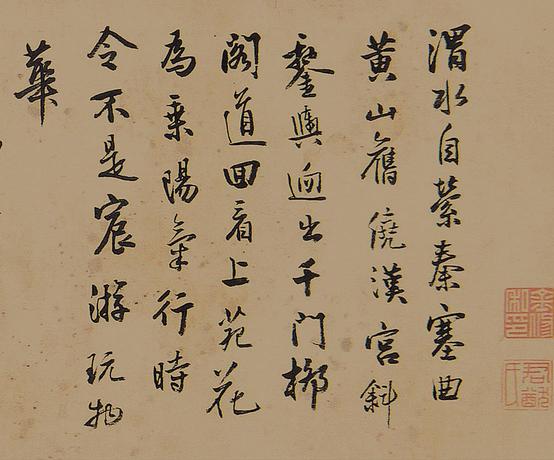 渭水自縈秦塞曲
黄山舊遶漢宮斜
鑾輿迥出千門柳
閣道回看上苑花
為乗陽氣行時
令不是宸游玩物
華